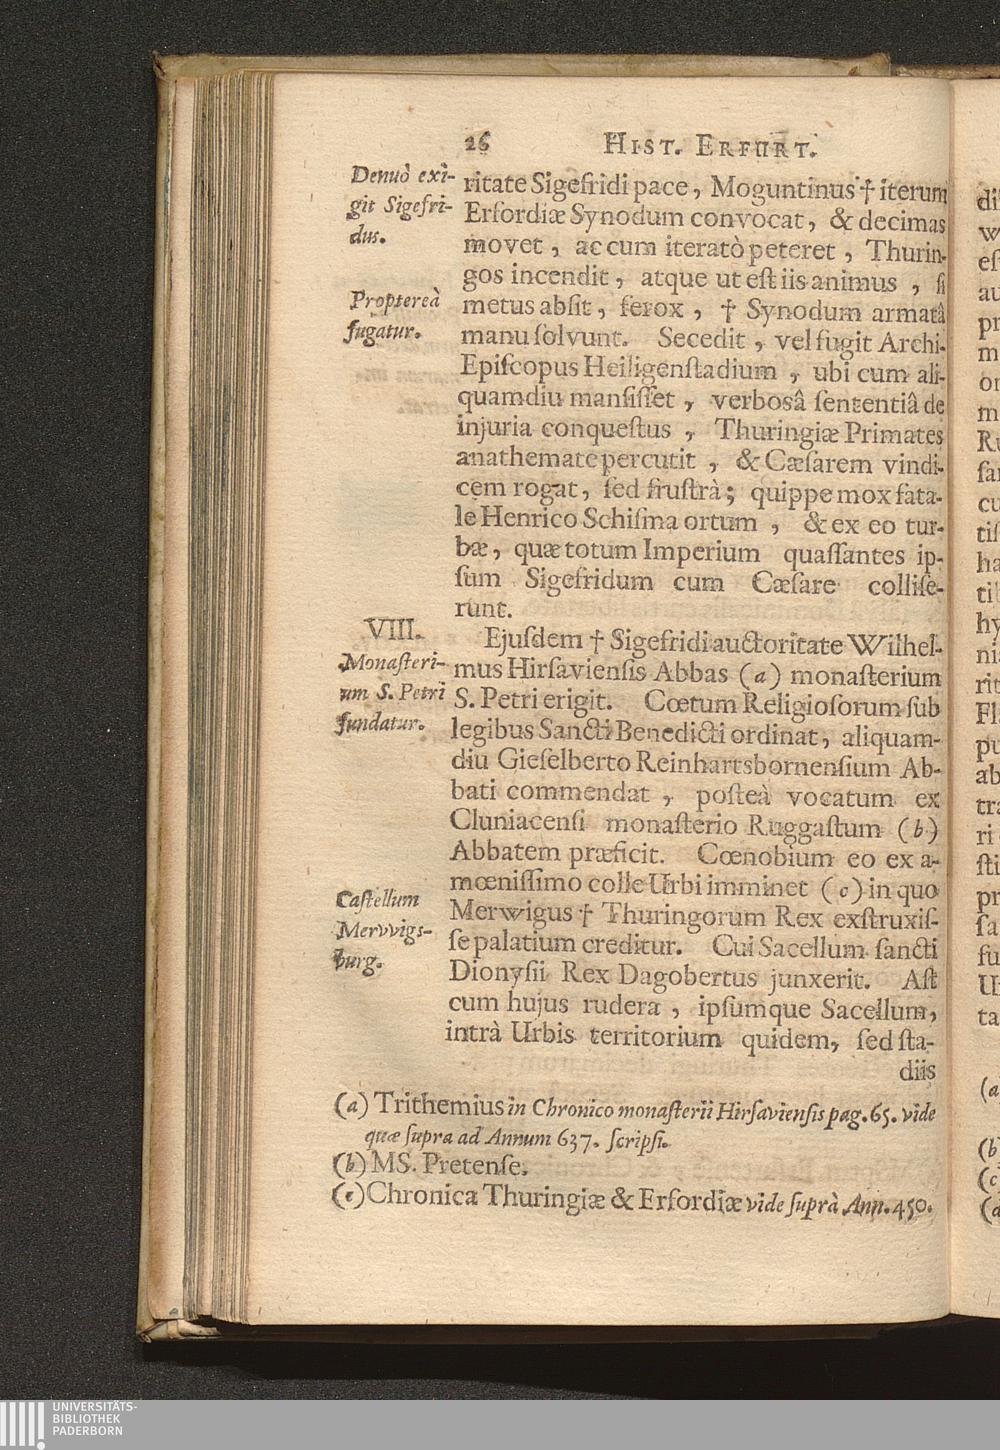 26 HIST. ERFURT.
Denuò exi-
git Sigefri-
dus.
ritate Sigefridi pace, Moguntinus † iterum
Erfordiæ Synodum convocat, & decimas
movet, ac cum iteratò peteret, Thurin-
gos incendit, atque ut eſt iis animus, ſi
Proptereà
fugatur.
metus abſit, ferox, † Synodum armatâ
manu ſolvunt. Secedit, vel fugit Archi-
Epiſcopus Heiligenſtadium, ubi cum ali-
quamdiu manſiſſet, verbosâ ſententiâ de
injuria conqueſtus, Thuringiæ Primates
anathemate percutit, & Cæſarem vindi-
cem rogat, ſed fruſtrà; quippe mox fata-
le Henrico Schiſma ortum, & ex eo tur-
bæ, quæ totum Imperium quaſſantes ip-
ſum Sigefridum cum Cæſare colliſe-
runt.
VIII.
Monaſteri-
um S. Petri
fundatur.
Ejuſdem † Sigefridi auctoritate Wilhel-
mus Hirſavienſis Abbas (a) monaſterium
S. Petri erigit. Cœtum Religioſorum ſub
legibus Sancti Benedicti ordinat, aliquam-
diu Gieſelberto Reinhartsbornenſium Ab-
bati commendat, poſteà vocatum ex
Cluniacenſi monaſterio Ruggaſtum (b)
Abbatem præficit. Cœnobium eo ex a-
mœniſſimo colle Urbi imminet (c) in quo
Caſtellum
Mervvigs-
burg.
Merwigus † Thuringorum Rex exſtruxiſ-
ſe palatium creditur. Cui Sacellum ſancti
Dionyſii Rex Dagobertus junxerit. Aſt
cum hujus rudera, ipſumque Sacellum,
intrà Urbis territorium quidem, ſed ſta-
diis
(a) Trithemius in Chronico monaſterii Hirſavienſis pag. 65. vide
quæ ſupra ad Annum 637. ſcripſi.
(b) MS. Pretenſe.
(c) Chronica Thuringiæ & Erfordiæ vide ſuprà Ann. 450.
UNIVERSITÄTS-
BIBLIOTHEK
PADERBORN